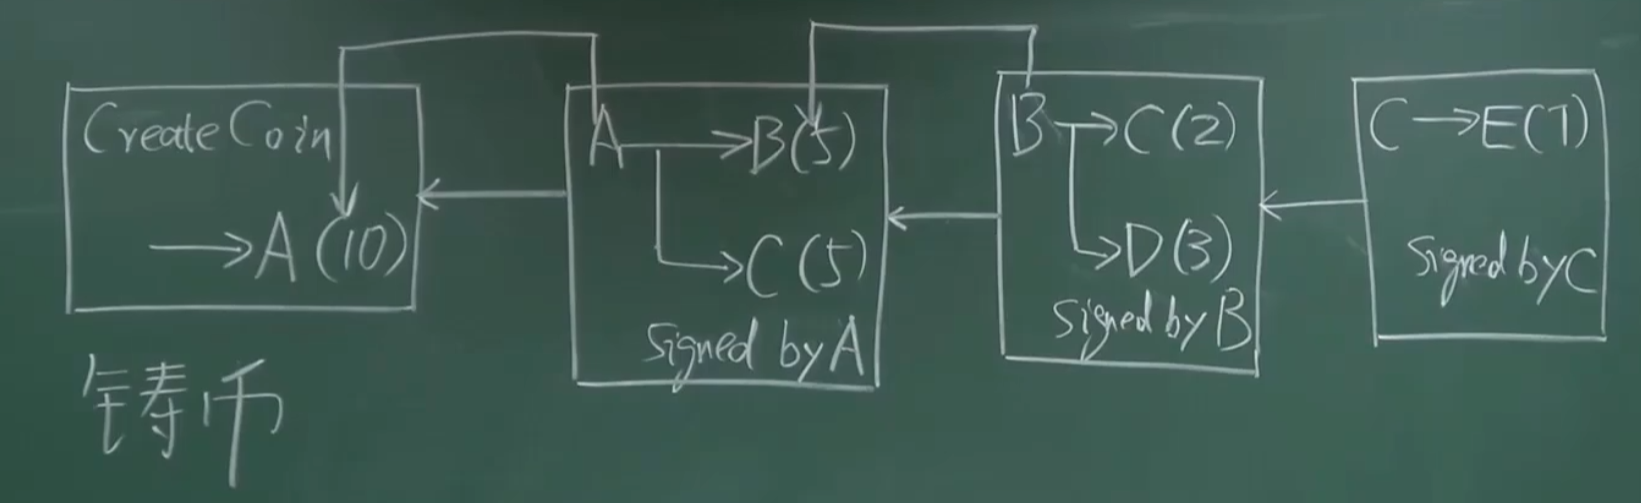 Create Coin
→ A (10)
铸币
A → B(5)
→ C (5)
signed by A
B → C(2)
→ D(3)
signed by B
C → E(7)
signed by C